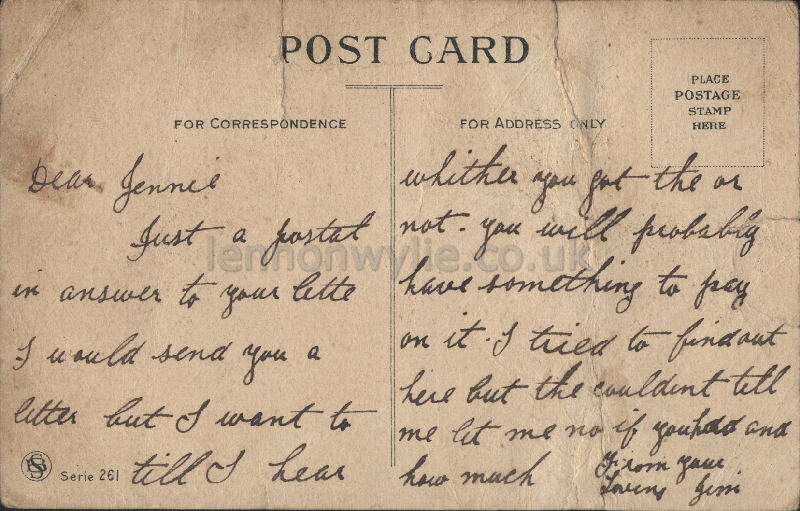 POST CARD
FOR CORRESPONDENCE
Dear Jennie
Just a postal
in answer to your lette
I would send you a
letter but I want to
till I hear
Serie 261
FOR ADDRESS ONLY
PLACE
POSTAGE
STAMP
HERE
whither you got the or
not. you will probably
have something to pay
on it. I tried to findout
here but the couldent tell
me let me no if you had and
how much
From your
Loving Jim
lennonwylie.co.uk